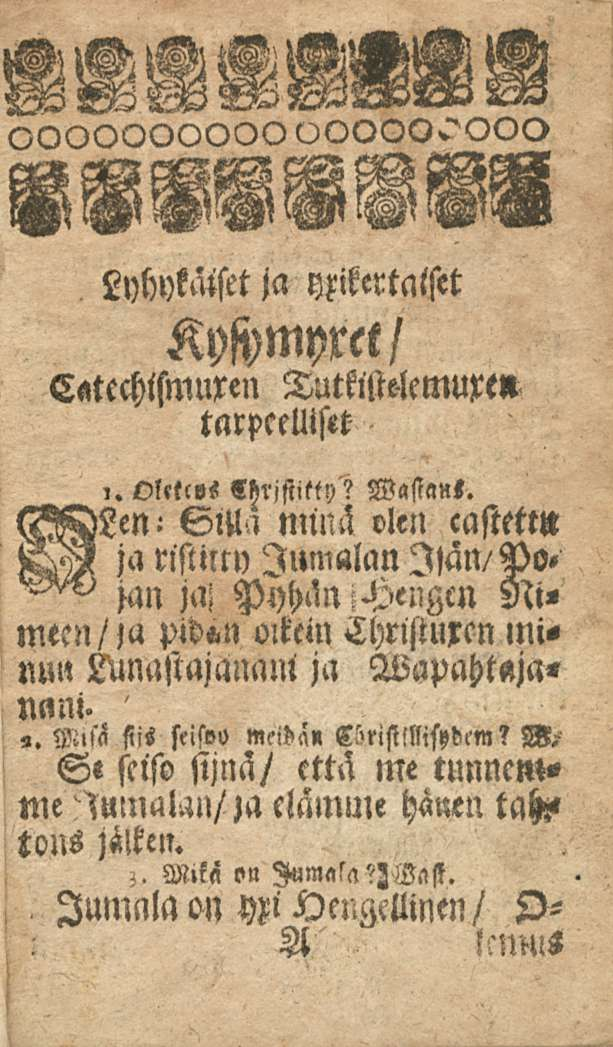 Lyhykäiset ja yxikertaiset
Kysymyxet/
Catechismuxen Tutkistelemuxen
tarpeelliset
1. Oletcos Christitty? Wastaus.
OLen: Sillä minä olen castettu
ja ristitty Jumalan Isän/ Po-
jan ja Pyhän Hengen Ni-
meen/ ja pidän oikein Christuxen mi-
nun Lunastajanani ja Wapahtaja-
nani.
2. Misä siis seisoo meidän Christillisydem? W.
Se seiso sijnä/ että me tunnem-
me Jumalan/ ja elämme hänen tah-
tons jälken.
3. Mikä on Jumala? Wast.
Jumala on yxi Hengellinen/ O-
A lemus